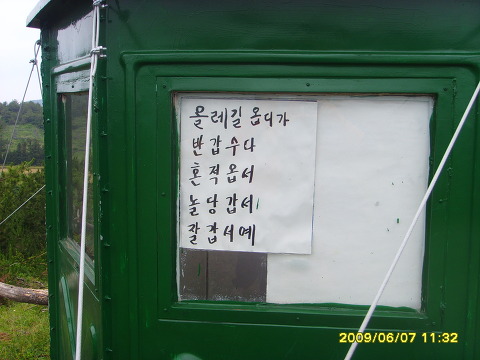 몰레길 옵디가
반갑수다
혼적옵서
놀당갑서
잘갑서예
2009/06/07 11:32